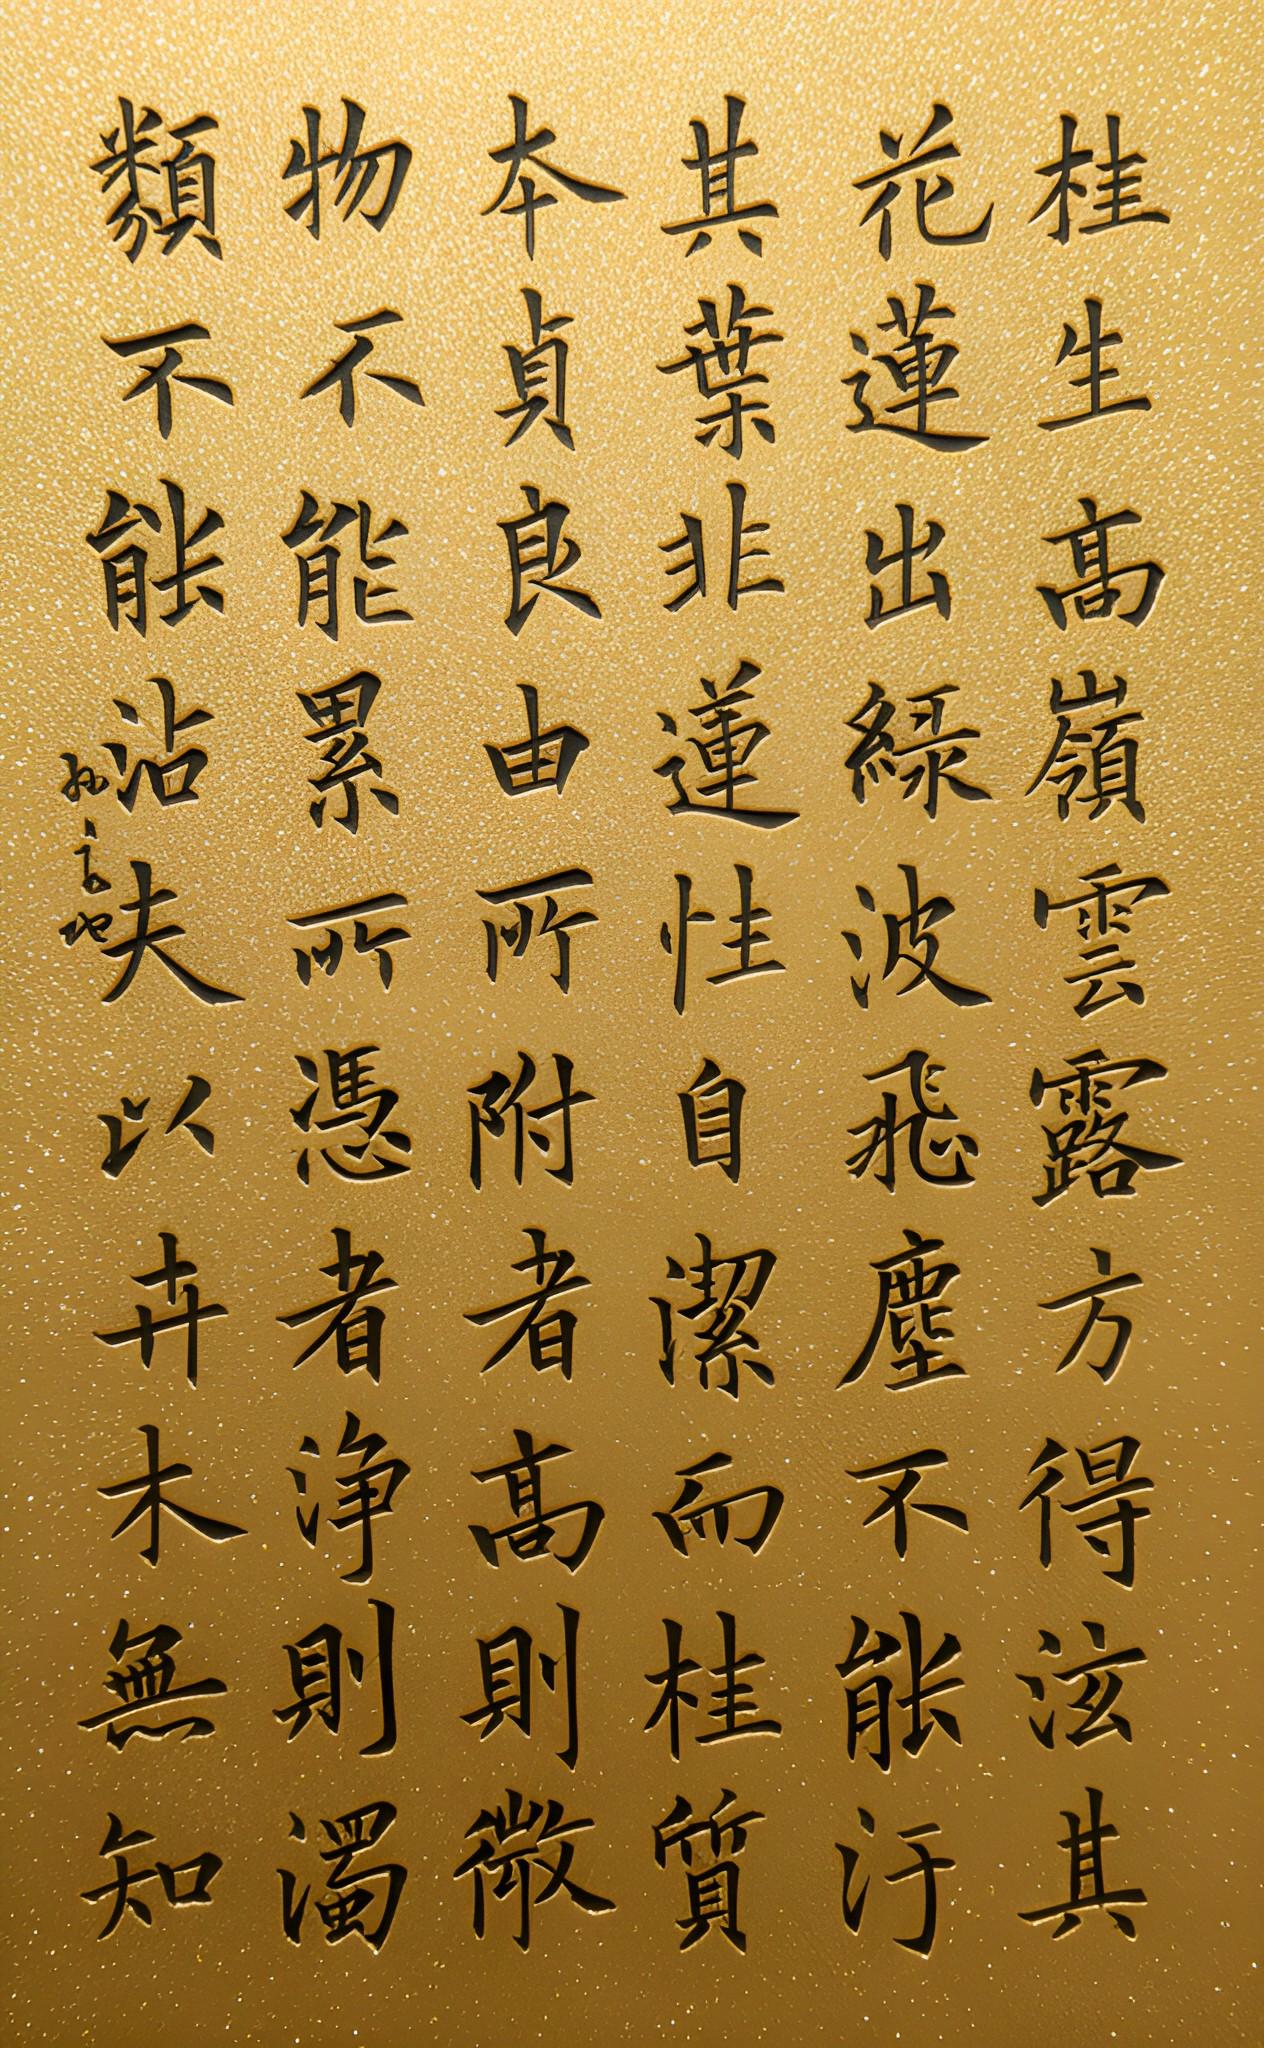 桂生高嶺雲露方得泫其
花蓮出綠波飛塵不能汙
其葉非蓮性自潔而桂質
本貞良由所附者高則微
物不能累所憑者淨則濁
類不能沾夫以卉木無知